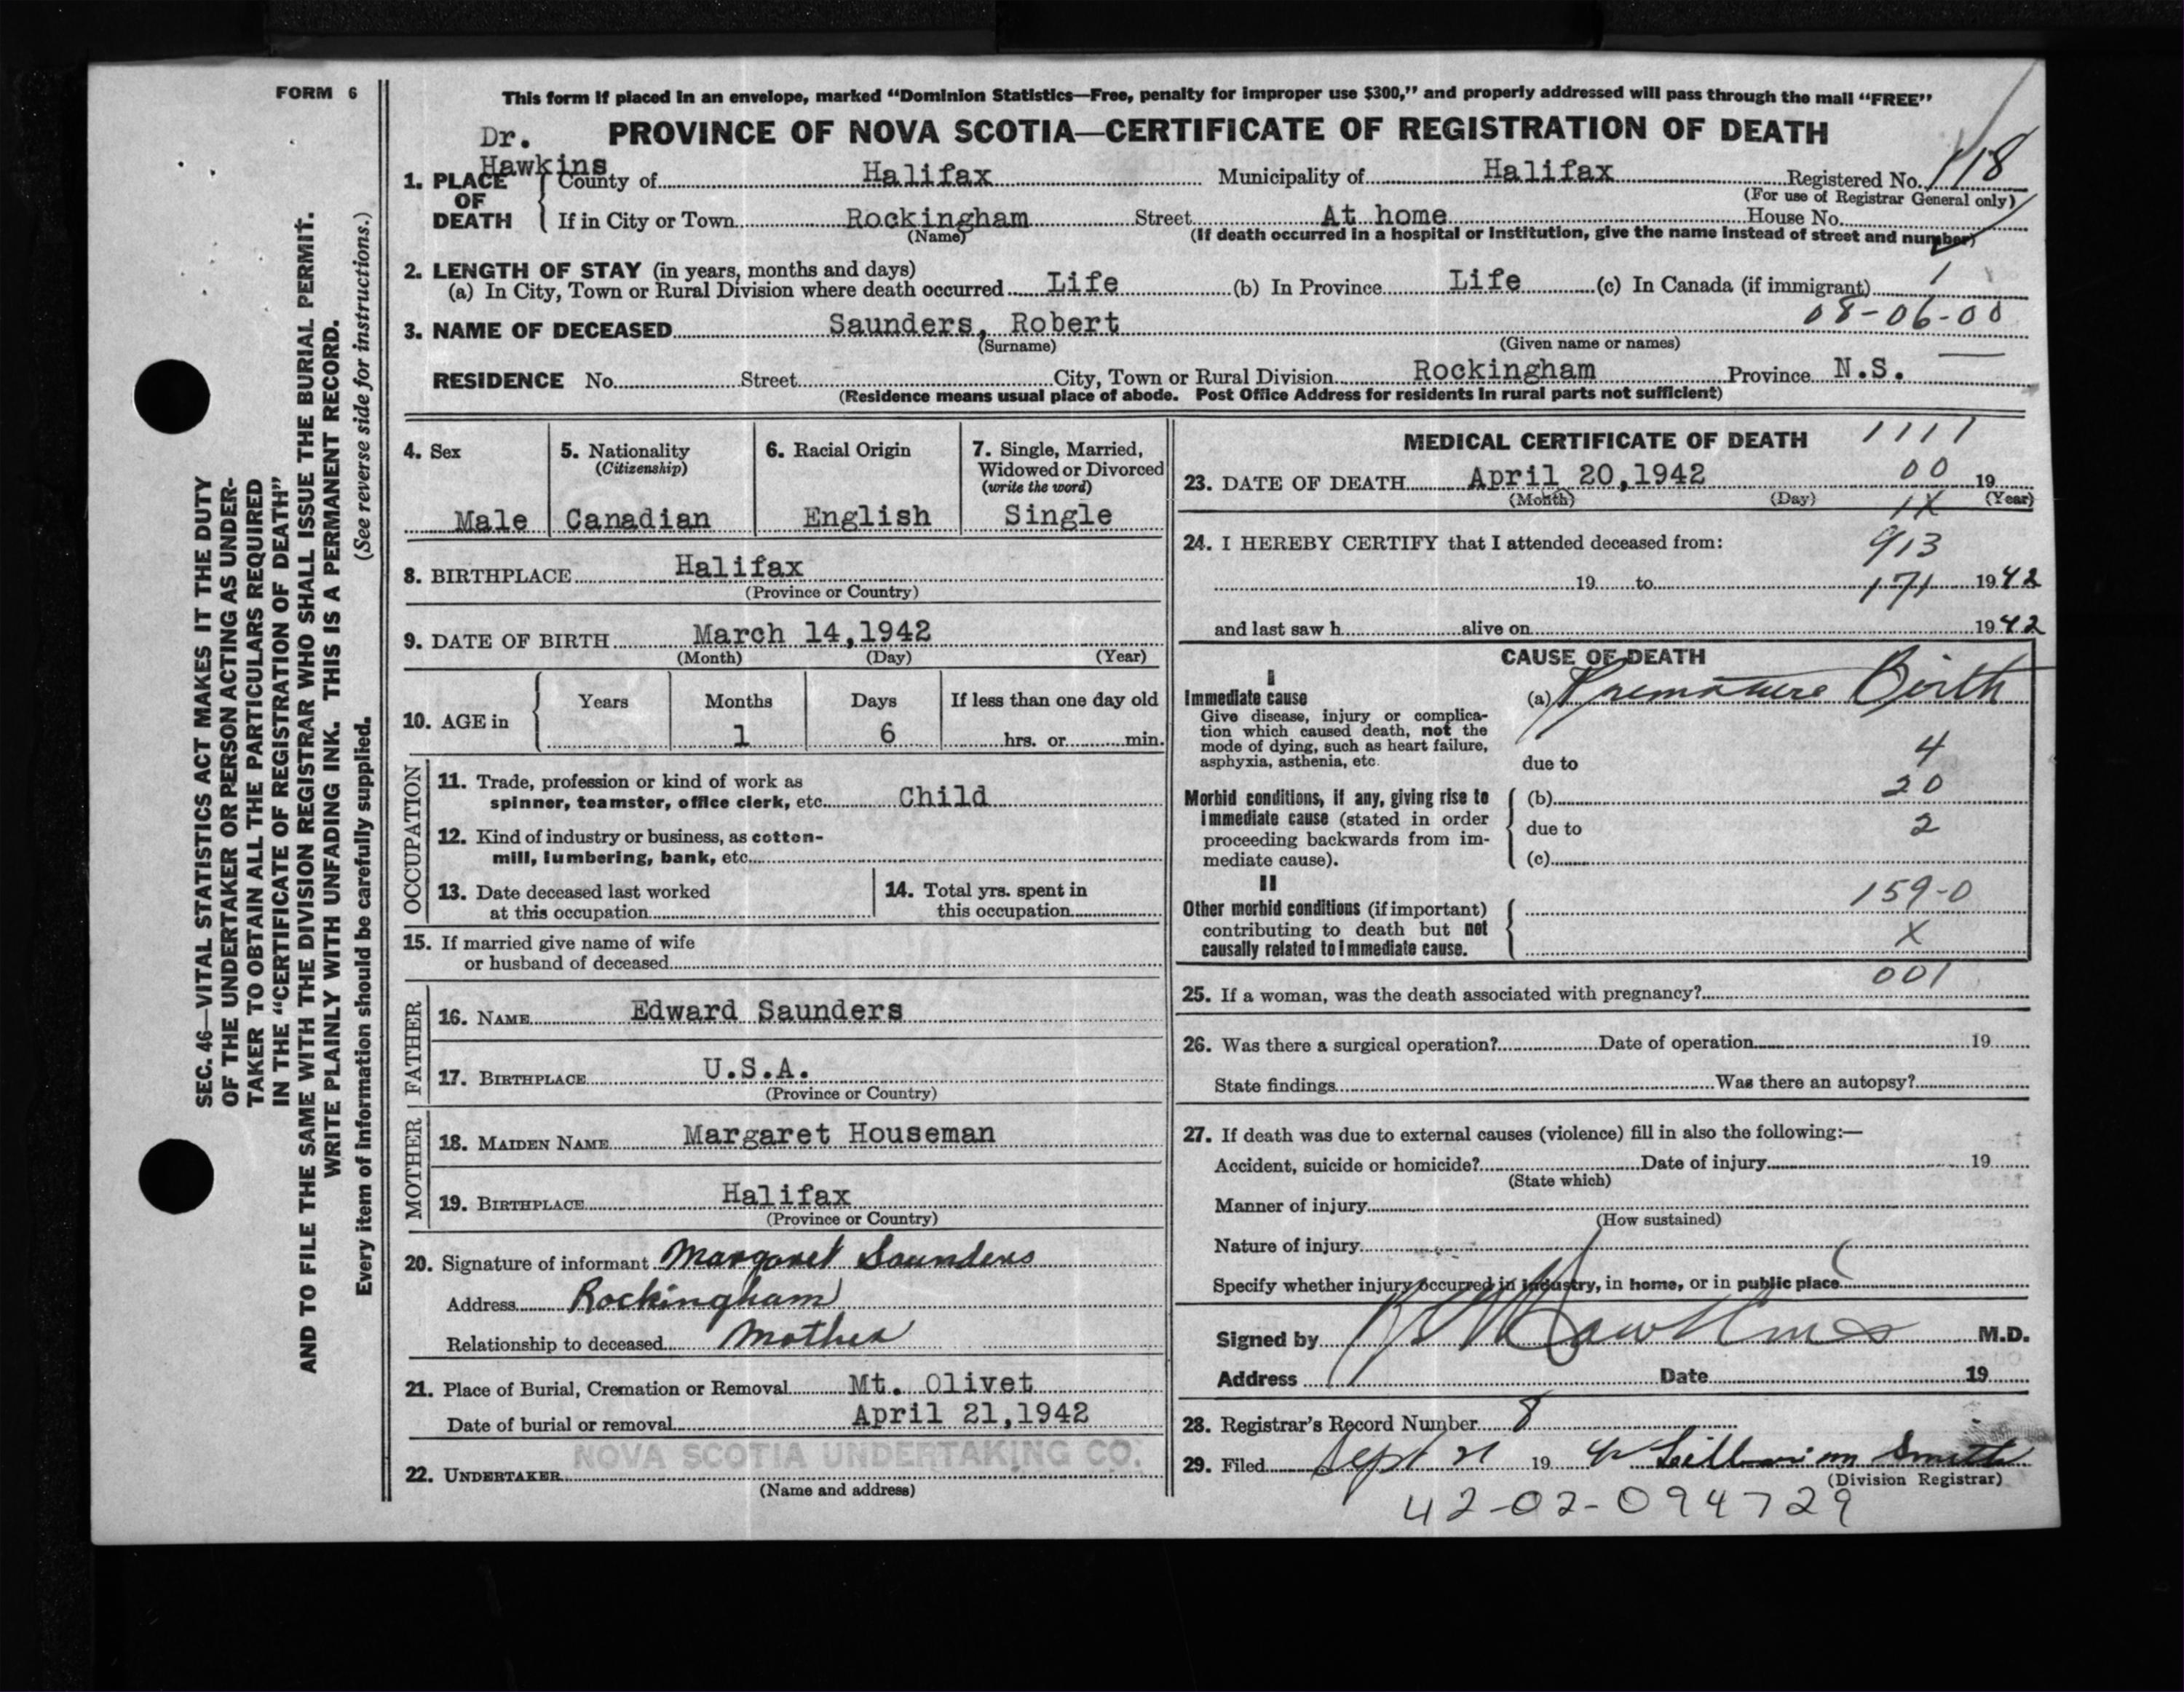 FORM 6
This form if placed in an envelope, marked "Dominion Statistics—Free, penalty for improper use $300," and properly addressed will pass through the mail "FREE"
Dr.
Hawkins
PROVINCE OF NOVA SCOTIA—CERTIFICATE OF REGISTRATION OF DEATH
1. PLACE OF DEATH
County of Halifax Municipality of Halifax Registered No. 118
(For use of Registrar General only)
If in City or Town Rockingham Street At home House No.
(Name) (If death occurred in a hospital or institution, give the name instead of street and number)
2. LENGTH OF STAY (in years, months and days)
(a) In City, Town or Rural Division where death occurred Life (b) In Province Life (c) In Canada (if immigrant) 1
08-06-00
3. NAME OF DECEASED Saunders, Robert
(Surname) (Given name or names)
RESIDENCE No. Street City, Town or Rural Division Rockingham Province N.S.
(Residence means usual place of abode. Post Office Address for residents in rural parts not sufficient)
4. Sex
Male
5. Nationality
(Citizenship)
Canadian
6. Racial Origin
English
7. Single, Married,
Widowed or Divorced
(write the word)
Single
8. BIRTHPLACE Halifax
(Province or Country)
9. DATE OF BIRTH March 14,1942
(Month) (Day) (Year)
10. AGE in
Years Months Days If less than one day old
1 6 hrs. or min.
OCCUPATION
11. Trade, profession or kind of work as
spinner, teamster, office clerk, etc. Child
12. Kind of industry or business, as cotton-
mill, lumbering, bank, etc.
13. Date deceased last worked
at this occupation
14. Total yrs. spent in
this occupation
15. If married give name of wife
or husband of deceased
FATHER
16. NAME Edward Saunders
17. BIRTHPLACE U.S.A.
(Province or Country)
MOTHER
18. MAIDEN NAME Margaret Houseman
19. BIRTHPLACE Halifax
(Province or Country)
20. Signature of informant Margaret Saunders
Address Rockingham
Relationship to deceased Mother
21. Place of Burial, Cremation or Removal Mt. Olivet
Date of burial or removal April 21,1942
NOVA SCOTIA UNDERTAKING CO.
22. UNDERTAKER
(Name and address)
MEDICAL CERTIFICATE OF DEATH 1111
23. DATE OF DEATH April 20,1942 00 19
(Month) (Day) 1X (Year)
24. I HEREBY CERTIFY that I attended deceased from: 913
19 to 171 1942
and last saw h alive on 1942
CAUSE OF DEATH
I
Immediate cause (a) Premature Birth
Give disease, injury or complica-
tion which caused death, not the
mode of dying, such as heart failure,
asphyxia, asthenia, etc.
due to 4
Morbid conditions, if any, giving rise to
immediate cause (stated in order
proceeding backwards from im-
mediate cause).
(b) 20
due to 2
(c)
II
Other morbid conditions (if important)
contributing to death but not
causally related to immediate cause.
159-0
X
001
25. If a woman, was the death associated with pregnancy?
26. Was there a surgical operation? Date of operation 19
State findings Was there an autopsy?
27. If death was due to external causes (violence) fill in also the following:—
Accident, suicide or homicide? Date of injury 19
(State which)
Manner of injury
(How sustained)
Nature of injury
Specify whether injury occurred in industry, in home, or in public place
Signed by Hawkins M.D.
Address Date 19
28. Registrar's Record Number 8
29. Filed Sept 21 19 42 Lillian M Smith
(Division Registrar)
42-02-094729
SEC. 46—VITAL STATISTICS ACT MAKES IT THE DUTY
OF THE UNDERTAKER OR PERSON ACTING AS UNDER-
TAKER TO OBTAIN ALL THE PARTICULARS REQUIRED
IN THE "CERTIFICATE OF REGISTRATION OF DEATH"
AND TO FILE THE SAME WITH THE DIVISION REGISTRAR WHO SHALL ISSUE THE BURIAL PERMIT.
WRITE PLAINLY WITH UNFADING INK. THIS IS A PERMANENT RECORD.
Every item of information should be carefully supplied. (See reverse side for instructions.)